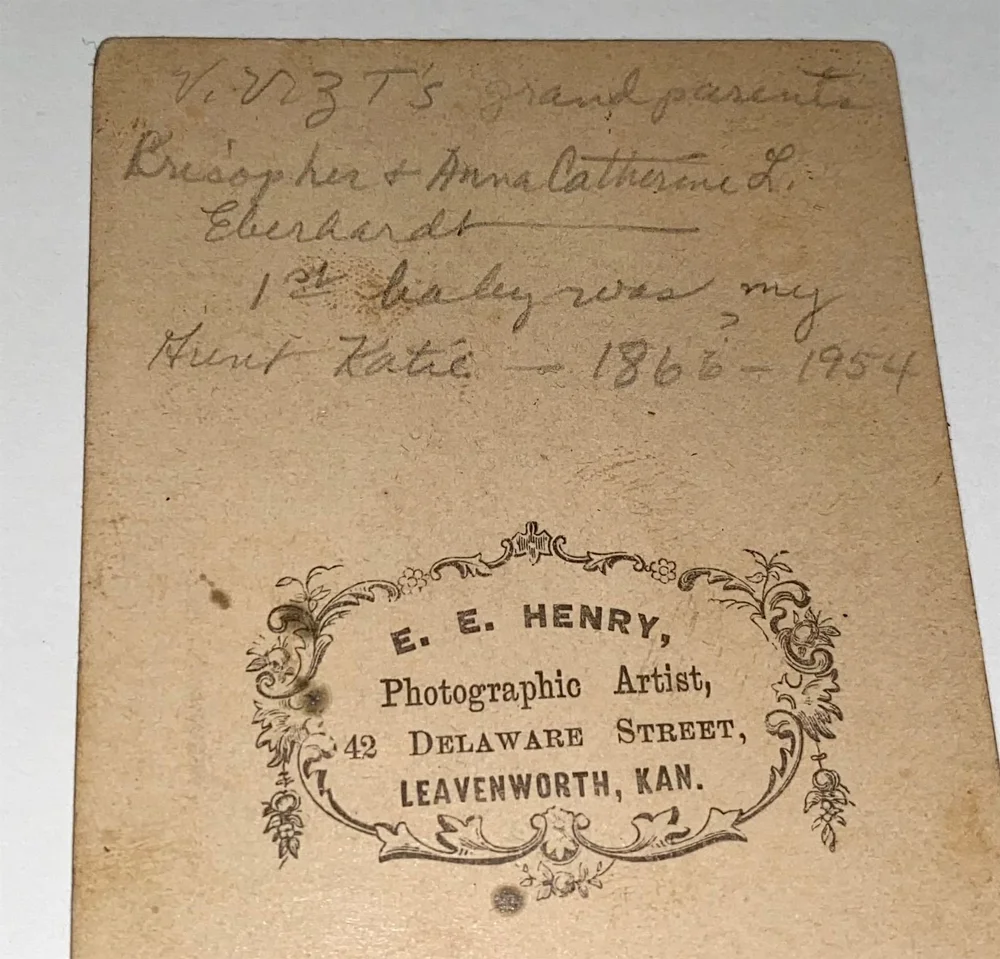 T's grandparents
& Anna Catherine L.
Eberhardt
1st baby was my
Aunt Katie - 1866 - 1954
?
E. E. HENRY,
Photographic Artist,
42 DELAWARE STREET,
LEAVENWORTH, KAN.